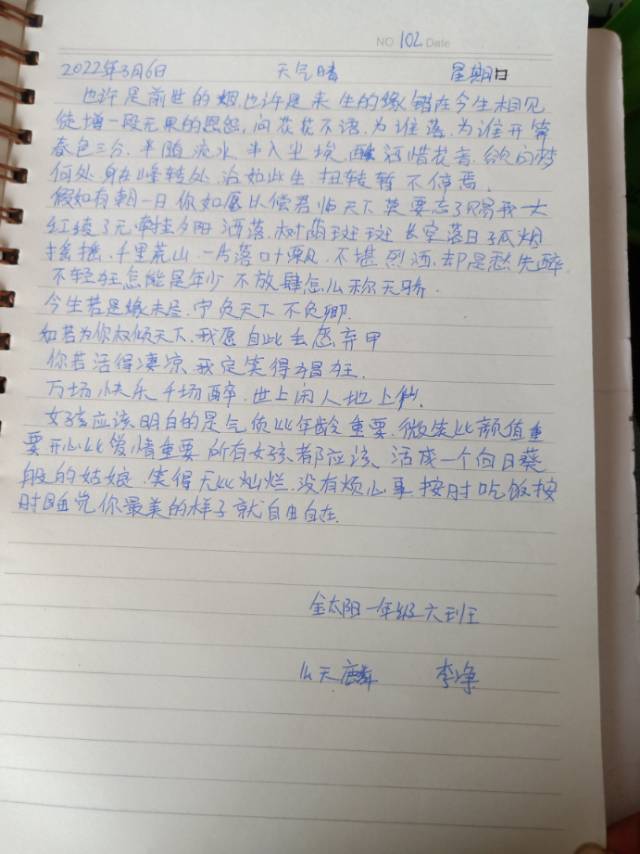 NO 102 Date
2022年3月6日 天气晴 星期日
也许是前世的烟,也许是来生的缘,错在今生相见
徒增一段无果的恩怨,问花花不语,为谁落,为谁开,算
春色三分,半随流水,半入尘埃,酿酒惜花音,欲问梦
何处,身在峰转处,治如此生 扭转暂不停焉.
假如有朝一日你如愿以偿君临天下 莫要忘了赐我一大
红绫了无牵挂夕阳洒落,树荫斑斑 长空落日孤烟
摇摇,千里荒山,一片落叶飘,不堪烈酒,却是愁先醉.
不轻狂怎能是年少 不放肆怎么称天骄
今生若是缘未尽,宁负天下不负卿.
如若为你权倾天下,我愿自此去愿弃甲
你若活得凄凉,我定笑得猖狂.
万场快乐千场醉,世上闲人地上仙.
女孩应该明白的是气质比年龄重要,微笑比颜值重
要开心比爱情重要 所有女孩都应该、活成一个向日葵
般的姑娘,笑得无比灿烂,没有烦心事 按时吃饭按
时睡觉你最美的样子就自由自在.
金太阳一年级六班
么天麟 李净